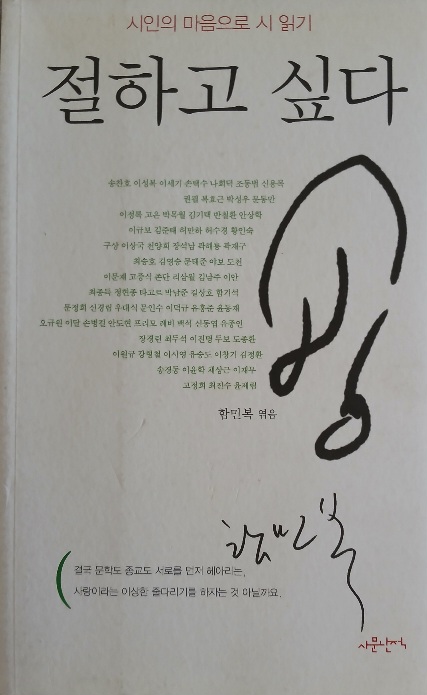 시인의 마음으로 시 읽기
절하고 싶다
송찬호 이성복 이세기 손택수 나희덕 조동범 신용목
권정 복효근 박성우 문동만
이정록 고은 박목월 김기택 반칠환 안상학
이규보 김춘배 허만하 허수경 황인숙
구상 이상국 천양희 장석남 곽해룡 곽재구
최승호 김영승 문태준 아보 도천
이문재 고중식 본단 리삼월 김남주 이안
최종득 정현종 타고르 박남준 김성호 함기석
문정희 신경림 우대식 문인수 이덕규 유홍준 윤동재
오규원 이달 손병걸 안도현 프리모 레비 백석 신동엽 유종인
장경린 최두석 이진명 두보 도종환
이원규 강형철 이시영 유승도 이창기 김정환
송경동 이윤학 채상근 이재무
고정희 최진수 윤제림
함민복 엮음
함민복
결국 문학도 종교도 서로를 먼저 헤아리는,
사랑이라는 이상한 줄다리기를 하자는 것 아닐까요.
사문난적